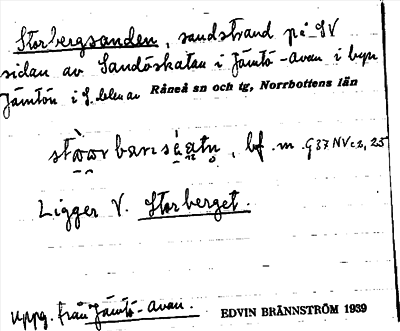 Storbergsanden, sandstrand på SV
sidan av Sandöskatan i Jämtö-avan i byn
Jämtön i S. delen av Råneå sn och tg, Norrbottens län
bf. m. G37NVc2,25
Ligger V. Storberget.
Uppg. från Jämtö-avan. EDVIN BRÄNNSTRÖM 1939